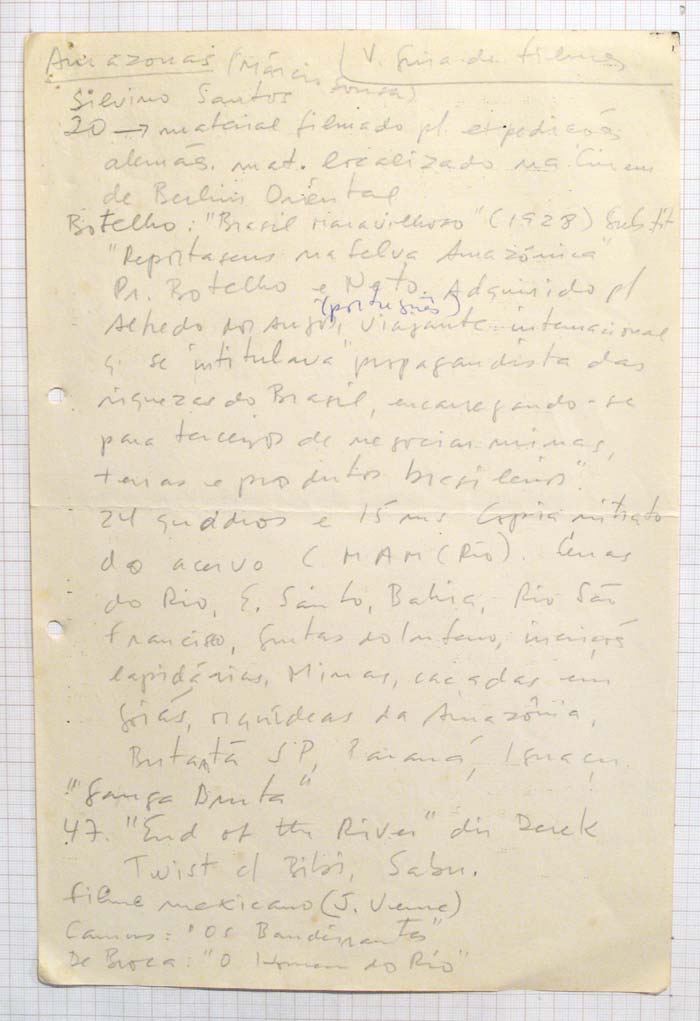 Amazonas (Márcio Souza) (V. Guia de Filmes
Silvino Santos
20 → material filmado p/ expedições
alemãs. mat. localizado na Cinem
de Berlim Oriental
Botelho: "Brasil maravilhoso" (1928) Subtit
"Reportagens na selva Amazônica"
Pr. Botelho e Neto. Adquirido p/
(português)
Alfredo dos Anjos, viajante internacional
q se intitulava "propagandista das
riquezas do Brasil, encarregando-se
para terceiros de negociar minas,
terras e produtos brasileiros".
24 quadros e 15 ms Copia nitrato
do acervo C MAM (Rio). Cenas
do Rio, E. Santo, Bahia, Rio São
Francisco, Grutas do Inferno, inscriçõs
lapidárias, Minas, caçadas em
Goiás, orquídeas da Amazônia,
Butantã SP, Paraná, Iguaçu.
"Ganga Bruta"
47. "End of the River" dir Derek
Twist c/ Bibi, Sabu.
filme mexicano (J. )
Camus: "Os Bandeirantes"
De Broca: "O Homem do Rio"